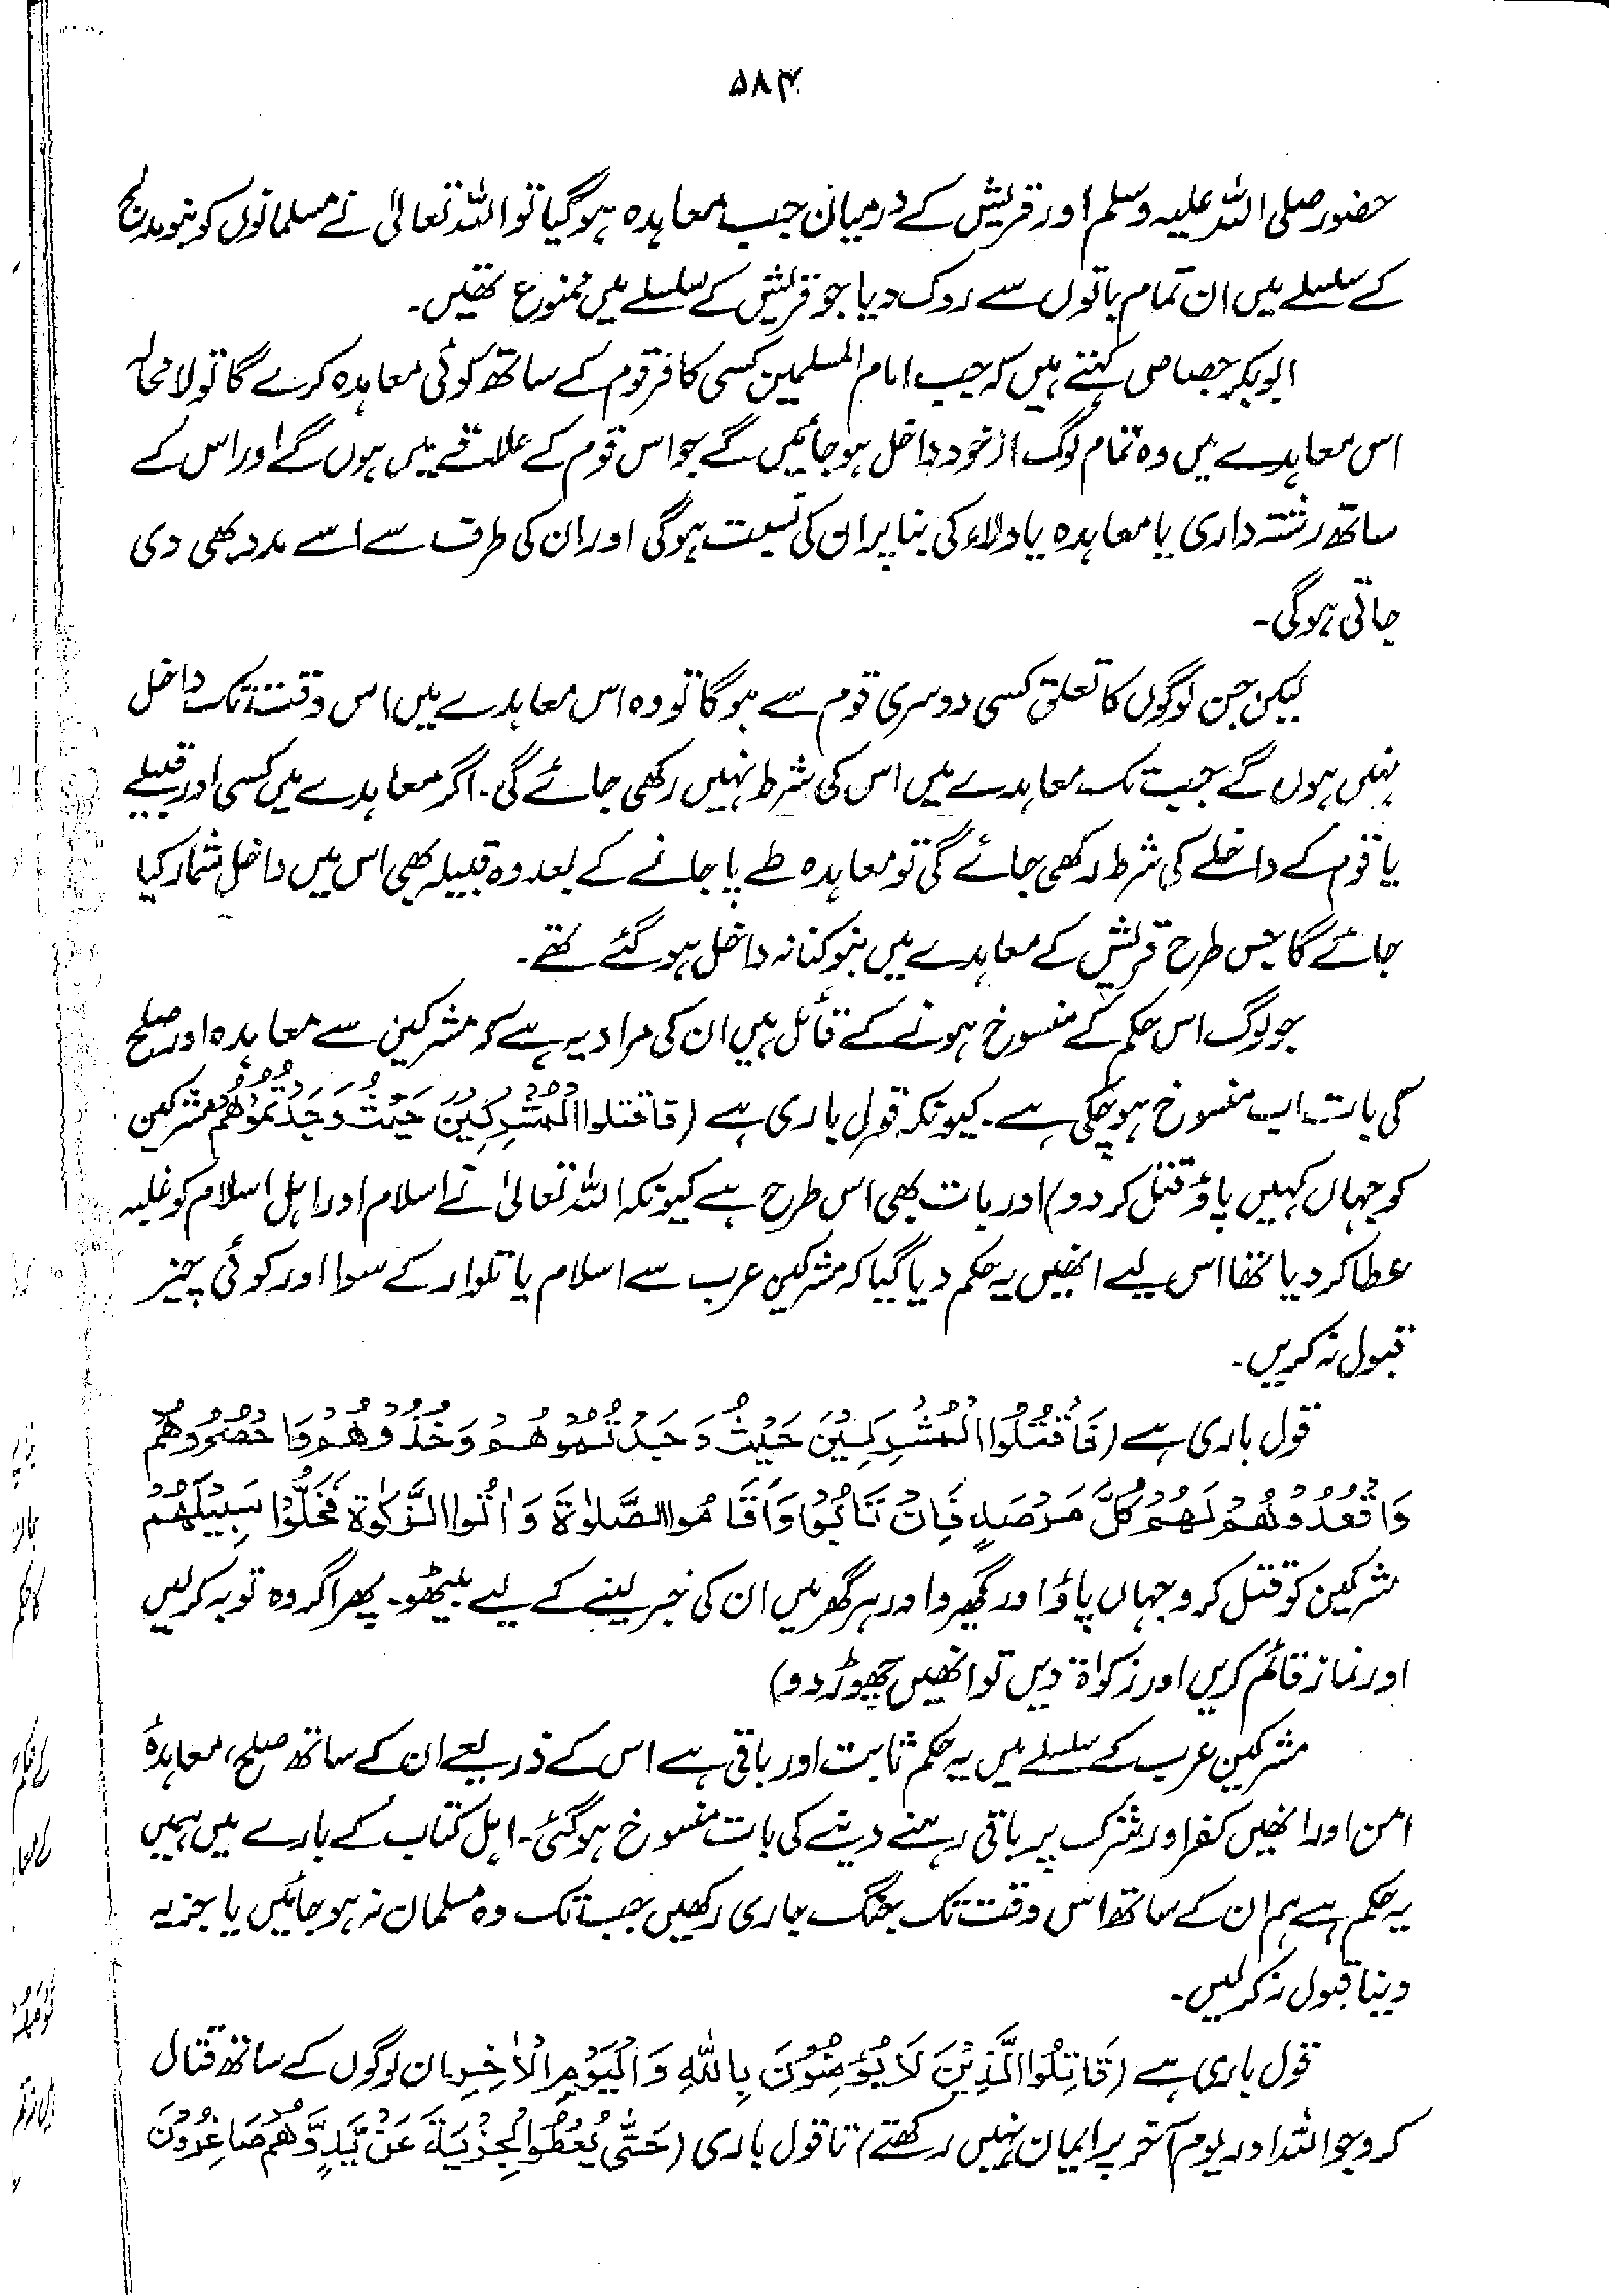 ۵۸۴
حضور صلی اللہ علیہ وسلم اور قریش کے درمیان جب معاہدہ ہوگیا تو اللہ تعالیٰ نے مسلمانوں کو بنو مدلج
کے سلسلے میں ان تمام باتوں سے روک دیا جو قریش کے سلسلے میں ممنوع تھیں۔
ابوبکر جصاص کہتے ہیں کہ جب امام المسلمین کسی کافر قوم کے ساتھ کوئی معاہدہ کرے گا تو لامحالہ
اس معاہدے میں وہ تمام لوگ ازخود داخل ہو جائیں گے جو اس قوم کے علاقے میں ہوں گے اور اس کے
ساتھ رشتہ داری یا معاہدہ یا ولاء کی بنا پر ان کی نسبت ہوگی اور ان کی طرف سے اسے مدد بھی دی
جاتی ہوگی۔
لیکن جن لوگوں کا تعلق کسی دوسری قوم سے ہوگا تو وہ اس معاہدے میں اس وقت تک داخل
نہیں ہوں گے جب تک معاہدے میں اس کی شرط نہیں رکھی جائے گی۔ اگر معاہدے میں کسی اور قبیلے
یا قوم کے داخلے کی شرط رکھی جائے گی تو معاہدہ طے پا جانے کے بعد وہ قبیلہ بھی اس میں داخل شمار کیا
جائے گا جس طرح قریش کے معاہدے میں بنو کنانہ داخل ہو گئے تھے۔
جو لوگ اس حکم کے منسوخ ہونے کے قائل ہیں ان کی مراد یہ ہے کہ مشرکین سے معاہدہ اور صلح
کی بات اب منسوخ ہو چکی ہے۔ کیونکہ قول باری ہے (فاقتلوا الْمُشْرِكِيْنَ حَيْثُ وَجَدْتُمُوْهُمْ مشرکین
کو جہاں کہیں پاؤ قتل کر دو) اور بات بھی اس طرح ہے کیونکہ اللہ تعالیٰ نے اسلام اور اہل اسلام کو غلبہ
عطا کر دیا تھا اس لیے انھیں یہ حکم دیا گیا کہ مشرکین عرب سے اسلام یا تلوار کے سوا اور کوئی چیز
قبول نہ کریں۔
قول باری ہے (فَاقْتُلُوا الْمُشْرِكِيْنَ حَيْثُ وَجَدْتُمُوْهُمْ وَخُذُوْهُمْ وَاحْصُرُوْهُمْ
وَاقْعُدُوْا لَهُمْ كُلَّ مَرْصَدٍ فَاِنْ تَابُوْا وَاَقَامُوا الصَّلٰوةَ وَاٰتُوا الزَّكٰوةَ فَخَلُّوْا سَبِيْلَهُمْ
مشرکین کو قتل کرو جہاں پاؤ اور گھیرو اور ہر گھر میں ان کی خبر لینے کے لیے بیٹھو۔ پھر اگر وہ توبہ کرلیں
اور نماز قائم کریں اور زکواۃ دیں تو انھیں چھوڑ دو)
مشرکین عرب کے سلسلے میں یہ حکم ثابت اور باقی ہے اس کے ذریعے ان کے ساتھ صلح، معاہدۂ
امن اور انھیں کفر اور شرک پر باقی رہنے دینے کی بات منسوخ ہوگئی۔ اہل کتاب کے بارے میں ہمیں
یہ حکم ہے ہم ان کے ساتھ اس وقت تک جنگ جاری رکھیں جب تک وہ مسلمان نہ ہو جائیں یا جزیہ
دینا قبول نہ کرلیں۔
قول باری ہے (قَاتِلُوا الَّذِيْنَ لَا يُؤْمِنُوْنَ بِاللهِ وَالْيَوْمِ الْاٰخِرِ ان لوگوں کے ساتھ قتال
کرو جو اللہ اور یوم آخر پر ایمان نہیں رکھتے) تا قول باری (حَتّٰى يُعْطُوا الْجِزْيَةَ عَنْ يَّدٍ وَّهُمْ صَاغِرُوْنَ